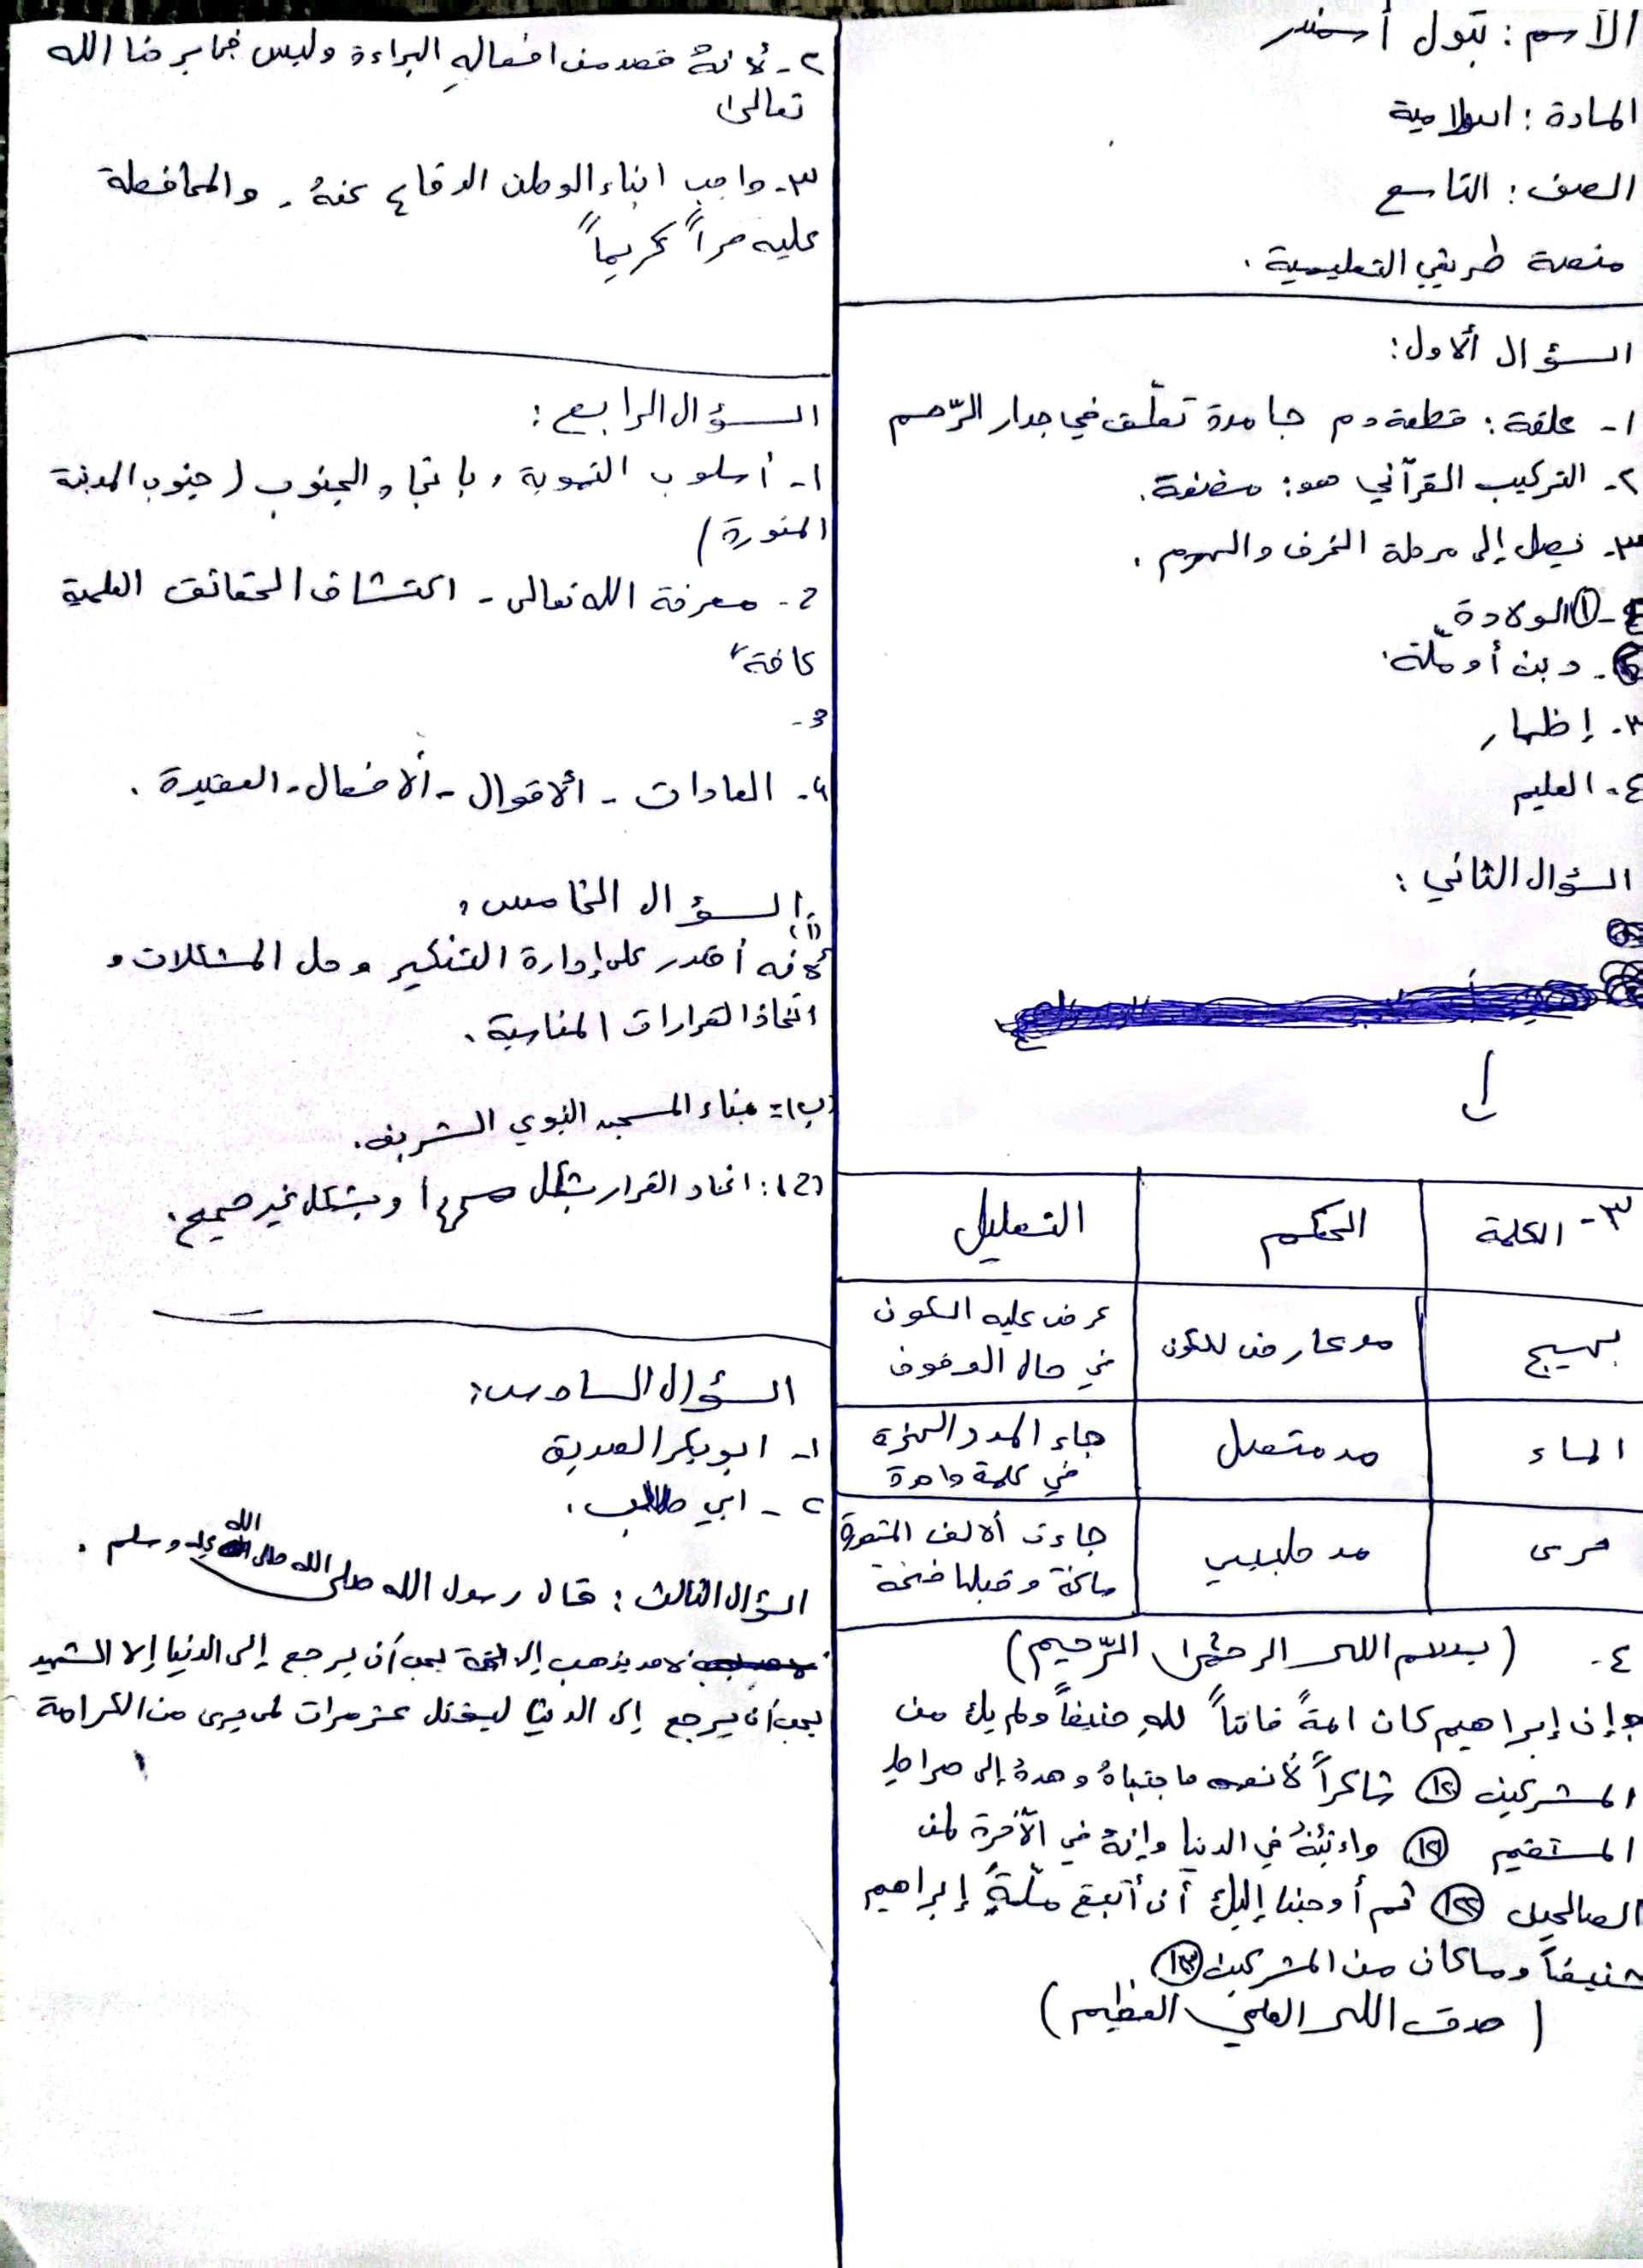 الاسم: بتول أسمندر
المادة: اسلامية
الصف: التاسع
منصة طريقي التعليمية.
السؤال ألاول:
١- علقة: قطعة دم جامدة تعلّق في جدار الرّحم
٢- التركيب القرآني هو: مضغة.
٣- نصل إلى مرحلة الخرف والهرم.
٤- ① الولادة
٢- دين أو ملّة.
٣- إظهار
٤- العليم
السؤال الثاني:
٣- الكلمة | الحكم | التعليل
بهيج | مد عارض للسكون | عرض عليه السكون في حال الوقوف
الماء | مد متصل | جاء المد والهمزة في كلمة واحدة
ترى | مد طبيعي | جاءت ألالف المقصورة ساكنة وقبلها فتحة
٤- (بسم الله الرحمن الرّحيم)
وإن إبراهيم كان امةً قانتاً للهِ حنيفاً ولم يك من
المشركين (١٢٠) شاكراً لأنعمه ما جتباهُ وهدهُ إلى صراطٍ
المستقيم (١٢١) واءتينهُ في الدنيا وإنهُ في الآخرة لمن
الصالحين (١٢٢) ثم أوحينا إليك أن أتبع ملّة إبراهيم
حنيفاً وماكان من المشركين (١٢٣)
(صدق الله العلي العظيم)
٢- لأنهُ قصد من افعالهِ البراءة وليس فيما يرضا الله
تعالى
٣- واجب ابناء الوطن الدفاع عنهُ. والمحافظة
عليه حراً كريماً
السؤال الرابع:
١- أسلوب التموية، باتجاه الجنوب (جنوب المدينة
المنورة)
2- معرفة الله تعالى - اكتشاف الحقائق العلمية
كافة
3-
٤- العادات - ألاقوال - ألافعال - العقيدة.
السؤال الخامس:
(أ)
لأنه أقدر على إدارة التفكير وحل المشكلات و
اتخاذ القرارات المناسبة.
(ب) 1: بناء المسجد النبوي الشريف.
(2): اتخاد القرار بشكل وبشكل غير صحيح.
السؤال السادس:
١- ابو بكر الصديق
٢- ابي طالب.
السؤال الثالث: قال رسول الله صلى الله عليه وسلم.
لاحد يذهب إلى الجنة يحب أن يرجع إلى الدنيا إلا الشهيد
يحب أن يرجع إلى الدنيا ليقتل عشر مرات لمى يرى من الكرامة